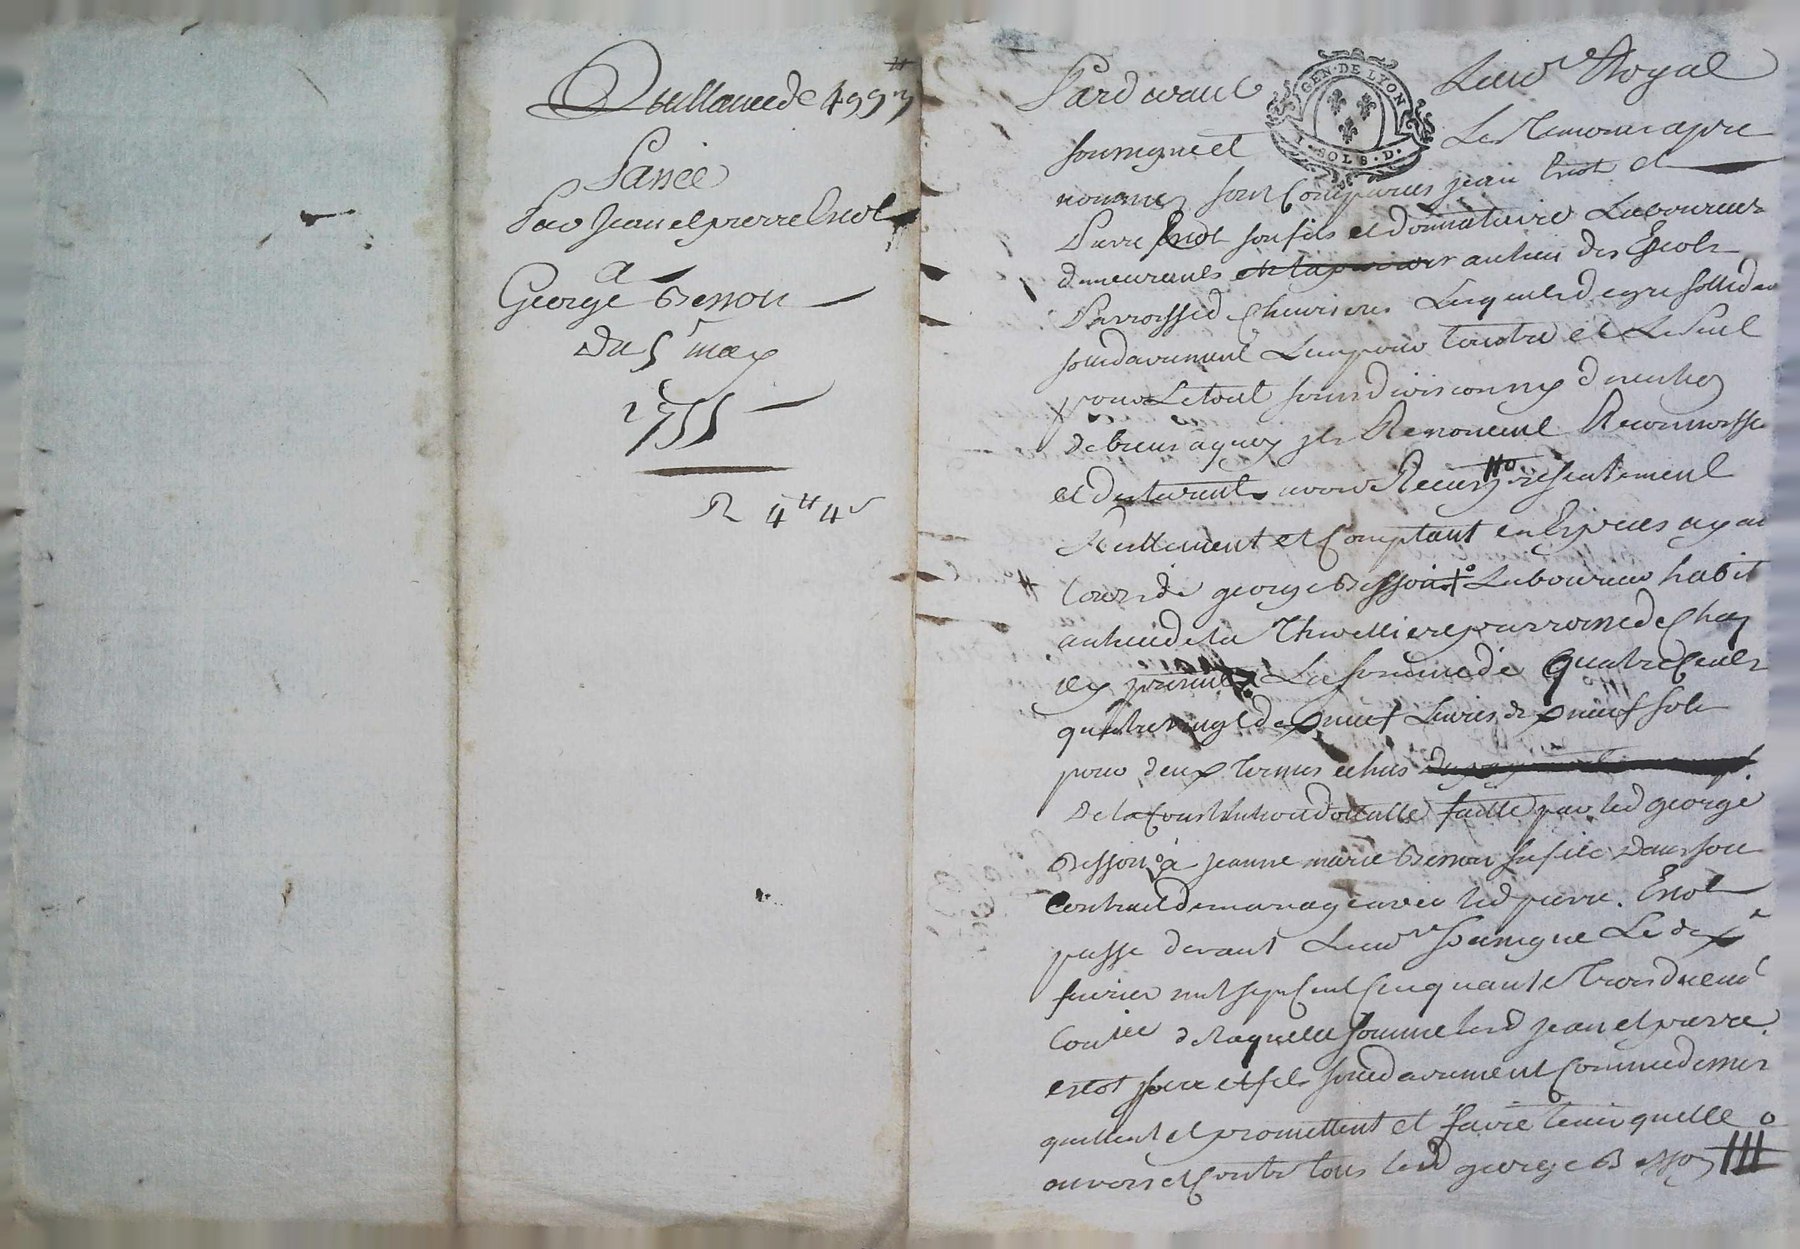 Quittance de 499ᵗᵗ
Passée
Par Jean et pierre Enot
a
George Besson
du 5 may
1755
R 4ᵗᵗ 4ˢ
Pardevant GEN·DE LYON Royal
I·SOLS·D.
soussigné et Les Temoins apre
nommez sont Comparus jean Enot et
Pierre Enot son fils et donnataire Laboureurs
demeurants au lieu des Enots
Parroisse d Chevrieres Lesquels de gre
solidairement Lun pour Lautre et Le Seul
pour Le tout sans division ny
de biens a quoy ils Renoncent Reconnoisse
et declarent avoir Receu presentement
Reellement et Comptant en Especes ayan
Cours de george Besson Laboureur habit
au lieu de la Thivelliere parroisse de Chaz
La somme de quatre Cents
quatre vingt dix neuf Livres dix neuf sols
pour deux termes echus
De la Constitution dotalle faitte par led george
Besson a jeanne marie Besson sa fille dans son
Contract de mariage avec led pierre Enot
passe devant soussigne Le dix
fevrier mil sept Cent Cinquante Trois
de Laquelle somme lesd jean et pierre
enot pere et fils solidairement Comme dessus
quittent et promettent et faire tenir quitte
envers et Contre tous led george Besson